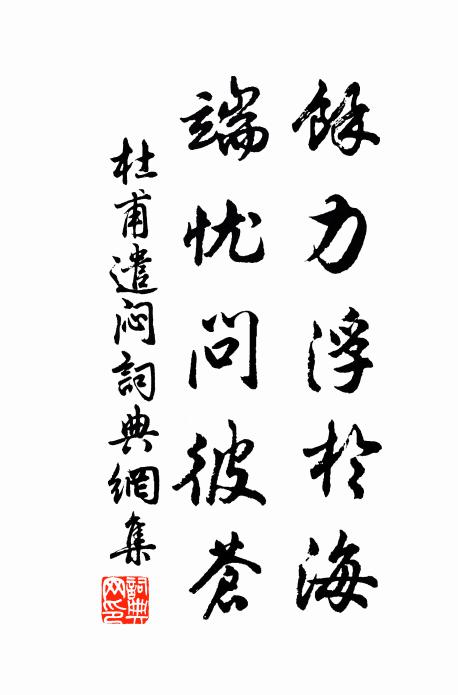 餘力浮於海
端忧问彼蒼
杜甫遣闷詞典網集
詞典
网印